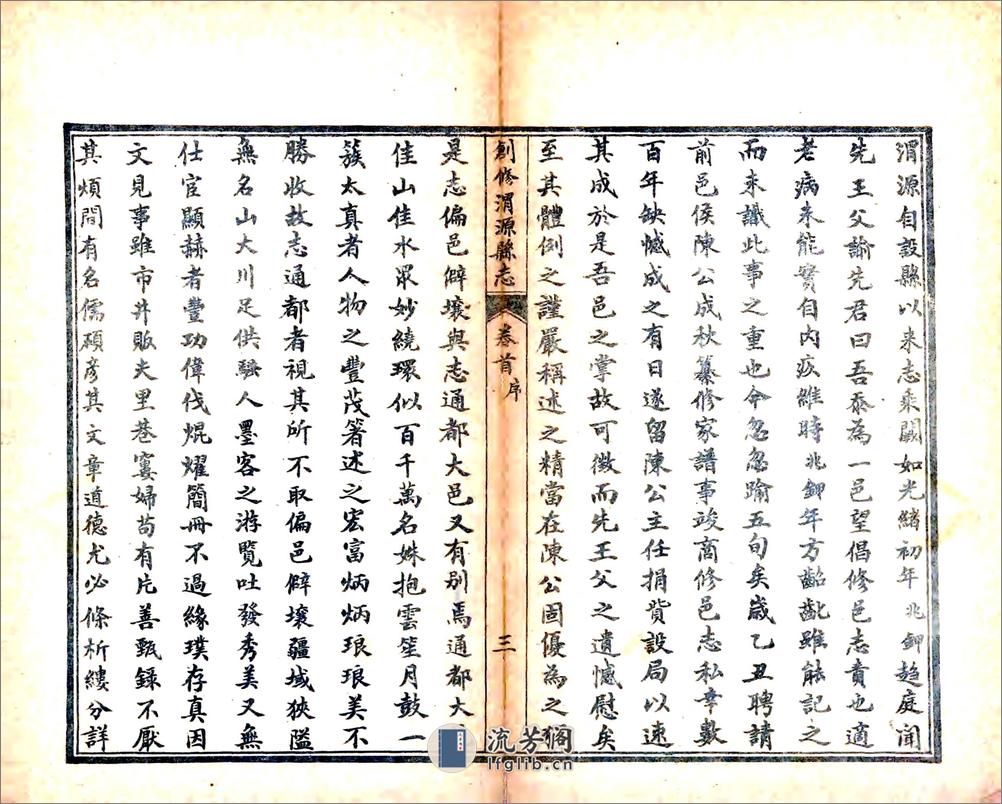 渭源自設縣以来志乘闕如光緒初年兆鉀趨庭聞
先王父諭先君曰吾忝為一邑望倡修邑志責也適
老病未能實自内疚維時兆鉀年方齠齔雖能記之
而未識此事之重也今忽忽踰五旬矣歲乙丑聘請
前邑侯陳公成秋纂修家譜事竣商修邑志私幸數
百年缺憾成之有日遂留陳公主任捐貲設局以速
其成於是吾邑之掌故可徵而先王父之遺憾慰矣
至其體例之謹嚴稱述之精當在陳公固優為之
創修渭源縣志 卷首 序 三
是志偏邑僻壤與志通都大邑又有别焉通都大
佳山佳水眾妙繞環似百千萬名姝抱雲笙月鼓一
簇太真者人物之豐茂著述之宏富炳炳琅琅美不
勝收故志通都者視其所不取偏邑僻壤疆域狹隘
無名山大川足供騷人墨客之游覽吐發秀美又無
仕宦顯赫者豐功偉伐焜燿簡冊不過緣璞存真因
文見事雖市井販夫里巷寠婦苟有片善甄錄不厭
其煩間有名儒碩彥其文章道德尤必條析縷分詳
流芳阁
lfglib.cn